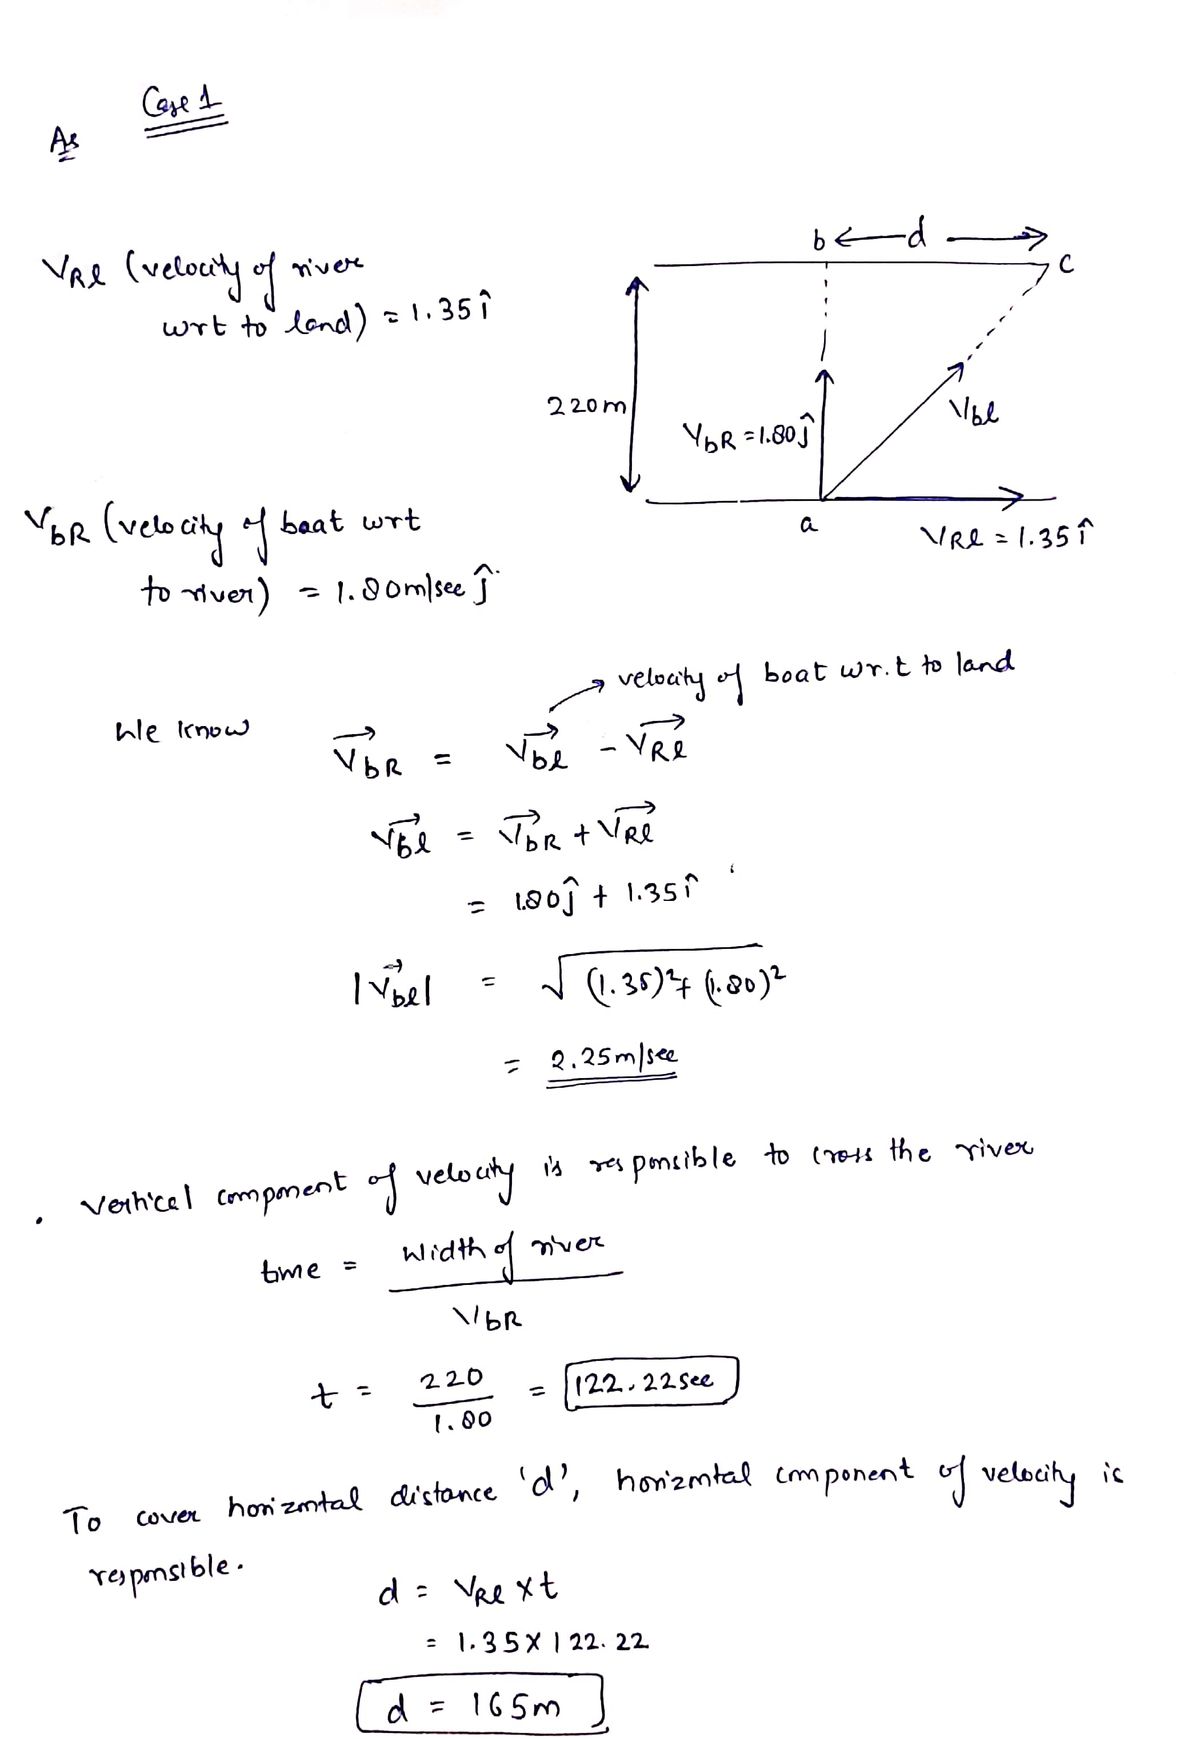 Case 1
As
VRl (velocity of river
wrt to land) = 1.35 î
b ← d → c
220m
VbR = 1.80 ĵ
Vbl
a
VRl = 1.35 î
VbR (velocity of boat wrt
to river) = 1.80m/sec ĵ
→ velocity of boat w.r.t to land
We know
VbR = Vbl - VRl
Vbl = VbR + VRl
= 1.80ĵ + 1.35î
|Vbl| = √(1.35)² + (1.80)²
= 2.25m/sec
. Vertical component of velocity is responsible to cross the river
time = Width of river
VbR
t = 220 = 122.22sec
1.80
To cover horizontal distance 'd', horizontal component of velocity is
responsible.
d = VRl × t
= 1.35 × 122.22
d = 165m